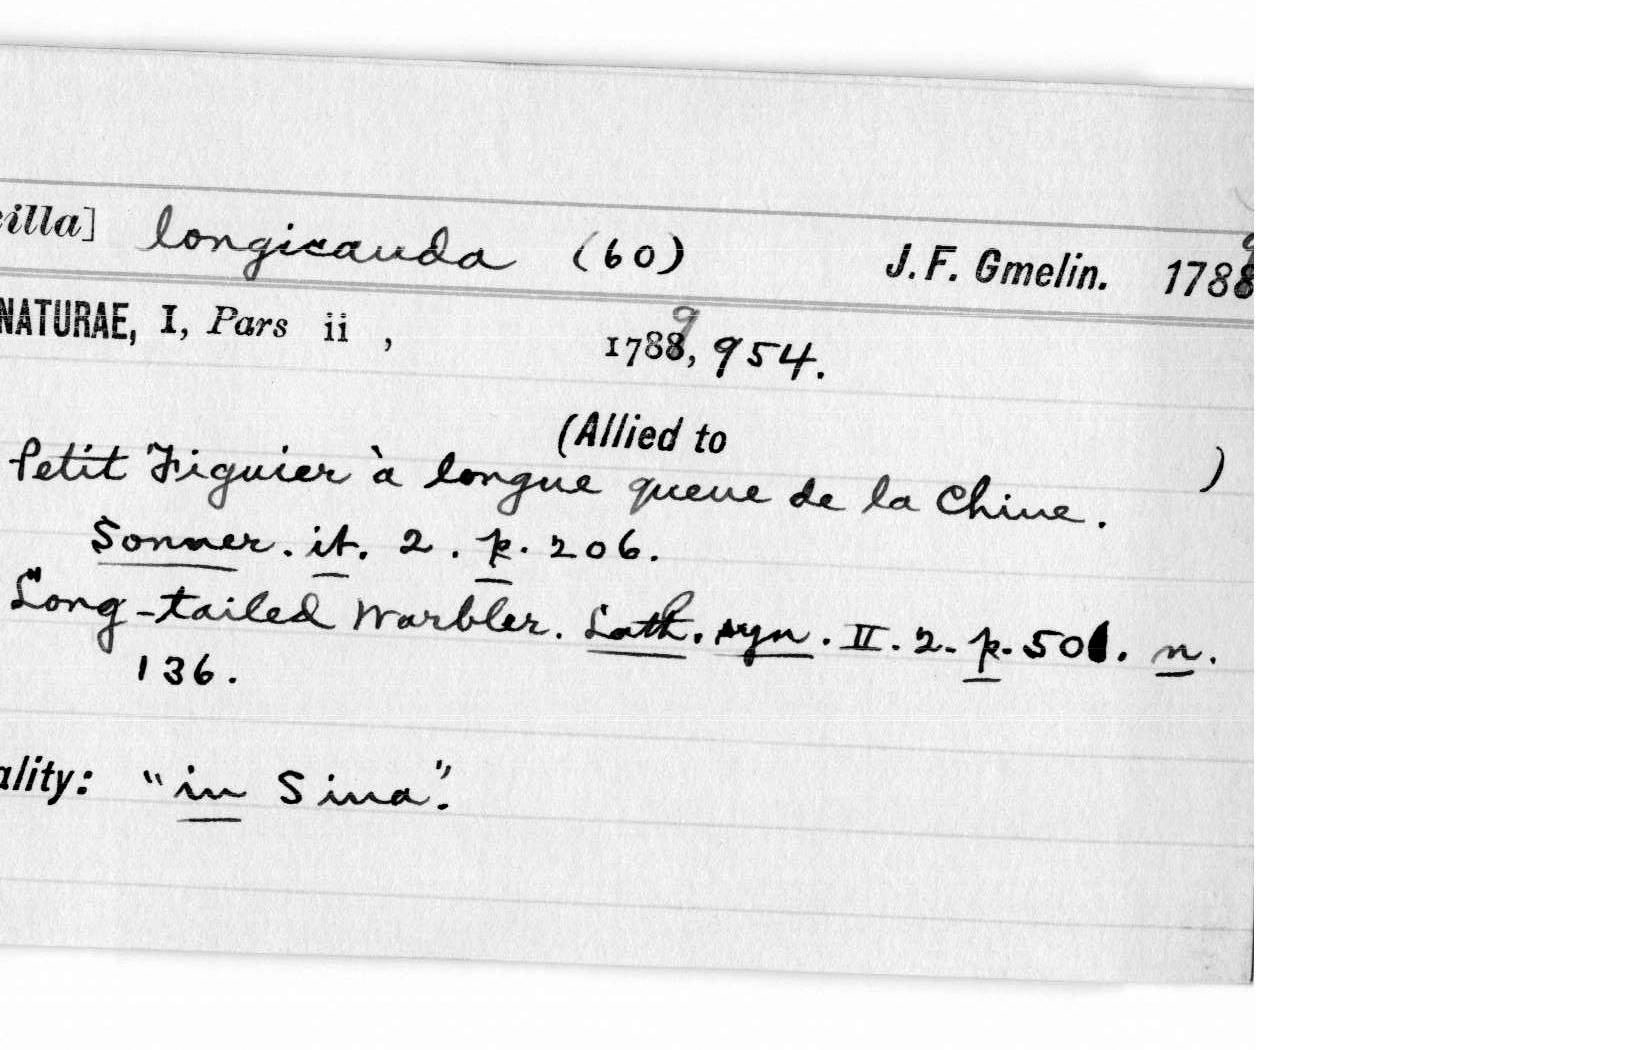 cilla] longicauda (60) J. F. Gmelin. 1789
NATURAE, I, Pars ii , 1789, 954.
(Allied to )
Petit Figuier à longue queue de la Chine.
Sonner. it. 2. p. 206.
Long-tailed Warbler. Lath. syn. II. 2. p. 501. n.
136.
ality: "in Sina".